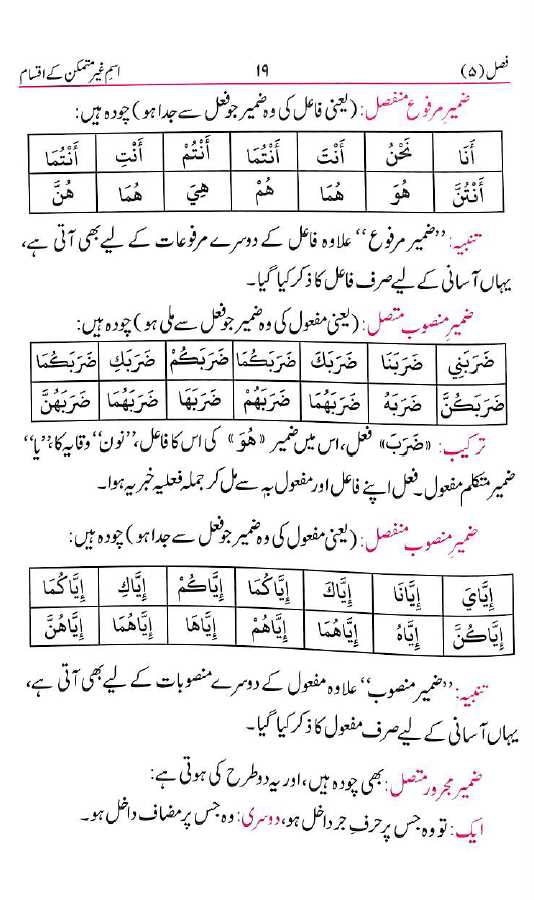 فصل (۵) ۱۹ اسمِ غیر متمکن کے اقسام
ضمیرِ مرفوع منفصل: (یعنی فاعل کی وہ ضمیر جو فعل سے جدا ہو) چودہ ہیں:
أَنَا نَحْنُ أَنْتَ أَنْتُمَا أَنْتُمْ أَنْتِ أَنْتُمَا
أَنْتُنَّ هُوَ هُمَا هُمْ هِيَ هُمَا هُنَّ
تنبیہ: ’’ضمیر مرفوع‘‘ علاوہ فاعل کے دوسرے مرفوعات کے لیے بھی آتی ہے،
یہاں آسانی کے لیے صرف فاعل کا ذکر کیا گیا۔
ضمیرِ منصوب متصل: (یعنی مفعول کی وہ ضمیر جو فعل سے ملی ہو) چودہ ہیں:
ضَرَبَنِي ضَرَبَنَا ضَرَبَكَ ضَرَبَكُمَا ضَرَبَكُمْ ضَرَبَكِ ضَرَبَكُمَا
ضَرَبَكُنَّ ضَرَبَهُ ضَرَبَهُمَا ضَرَبَهُمْ ضَرَبَهَا ضَرَبَهُمَا ضَرَبَهُنَّ
ترکیب: «ضَرَبَ» فعل، اس میں ضمیر «هُوَ» کی اس کا فاعل، ’’نون‘‘ وقایہ کا، ’’یا‘‘
ضمیر متکلم مفعول۔ فعل اپنے فاعل اور مفعول بہ سے مل کر جملہ فعلیہ خبریہ ہوا۔
ضمیرِ منصوب منفصل: (یعنی مفعول کی وہ ضمیر جو فعل سے جدا ہو) چودہ ہیں:
إِيَّايَ إِيَّانَا إِيَّاكَ إِيَّاكُمَا إِيَّاكُمْ إِيَّاكِ إِيَّاكُمَا
إِيَّاكُنَّ إِيَّاهُ إِيَّاهُمَا إِيَّاهُمْ إِيَّاهَا إِيَّاهُمَا إِيَّاهُنَّ
تنبیہ: ’’ضمیر منصوب‘‘ علاوہ مفعول کے دوسرے منصوبات کے لیے بھی آتی ہے،
یہاں آسانی کے لیے صرف مفعول کا ذکر کیا گیا۔
ضمیرِ مجرور متصل: بھی چودہ ہیں، اور یہ دو طرح کی ہوتی ہے:
ایک: تو وہ جس پر حرفِ جر داخل ہو، دوسری: وہ جس پر مضاف داخل ہو۔